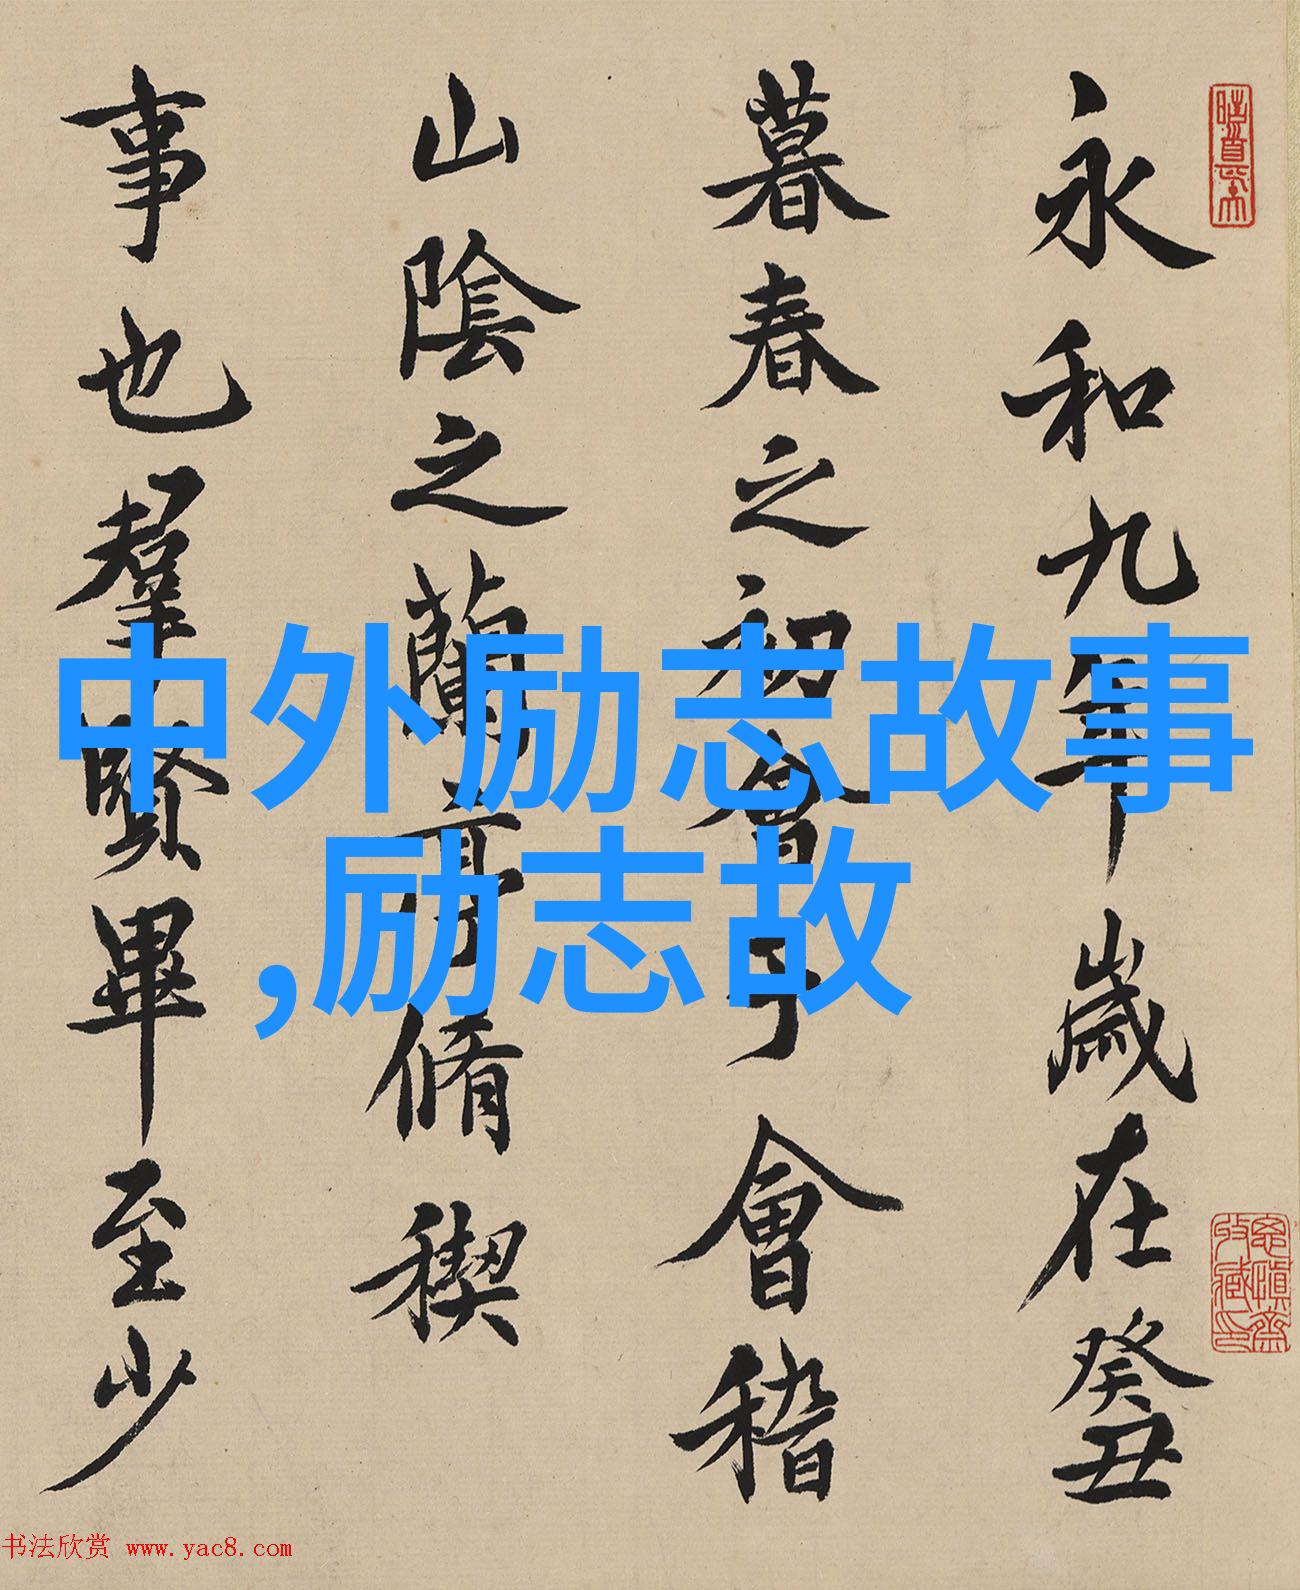 永和九年歲在癸丑
暮春之初會于會稽
山陰之蘭亭脩稧
事也羣賢畢至少
中外励志故事
,励志故
书法欣赏 www.yac8.com